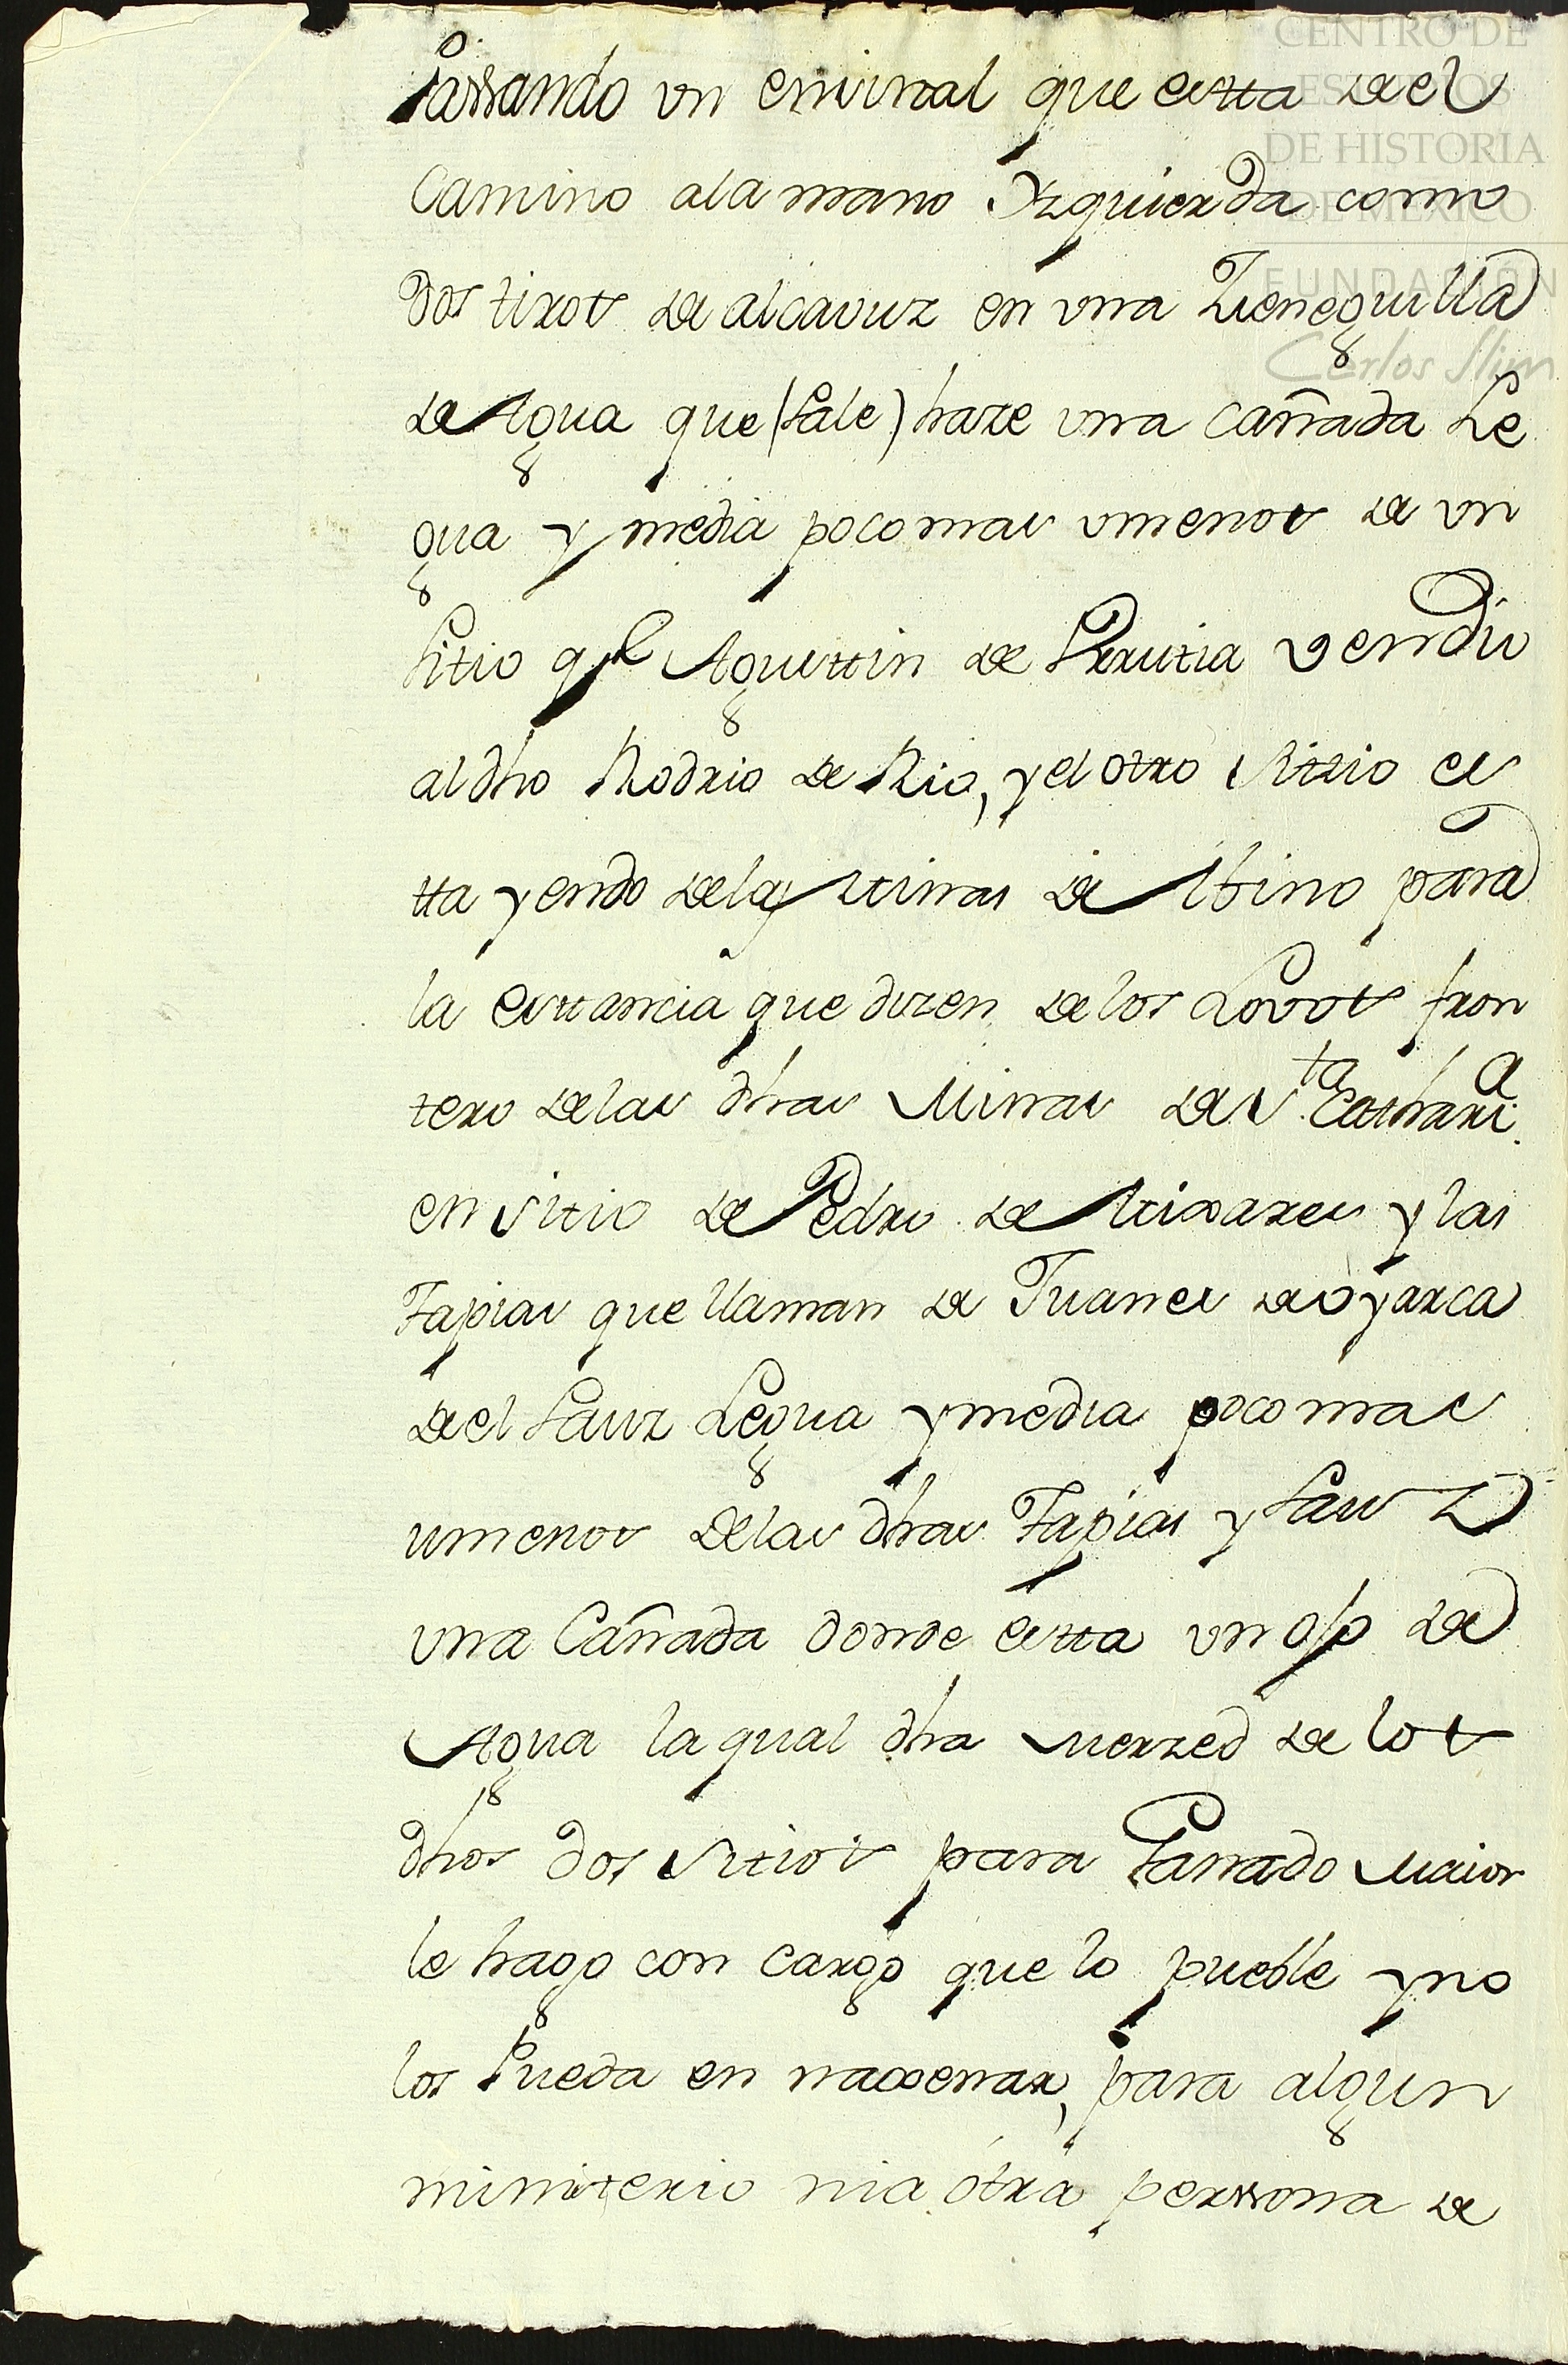 CENTRO DE
ESTUDIOS
DE HISTORIA
DE MEXICO
FUNDACIÓN
Carlos Slim
Passando vn enisnal que esta del
Camino ala mano Yzquierda como
dos tiros de alcavuz en vna Zieneguilla
de Agua que (sale) haze vna cañada Le
gua y media poco mas vmenos de vn
sitio q̱l Agustin de Vrrutia vendio
aldho Rodrio de Rio, y el otro sitio es
tta yendo delas Minas de Abino para
la esttancia que dizen de los Lovos fron
tero delas dhas Minas de Sta Catharia
en sitio de Pedro de Mixares y las
Tapias que llaman de Juanes de oyarca
del Sauz Legua y media poco mas
vmenos delas dhas Tapias y Sauz
vna Cañada donde estta vn ojo de
Agua la qual dha merzed de los
dhos dos sitios para Ganado Maior
le hago con cargo que lo pueble y no
los Pueda en naxenar, para algun
ministerio nia otra perssona de